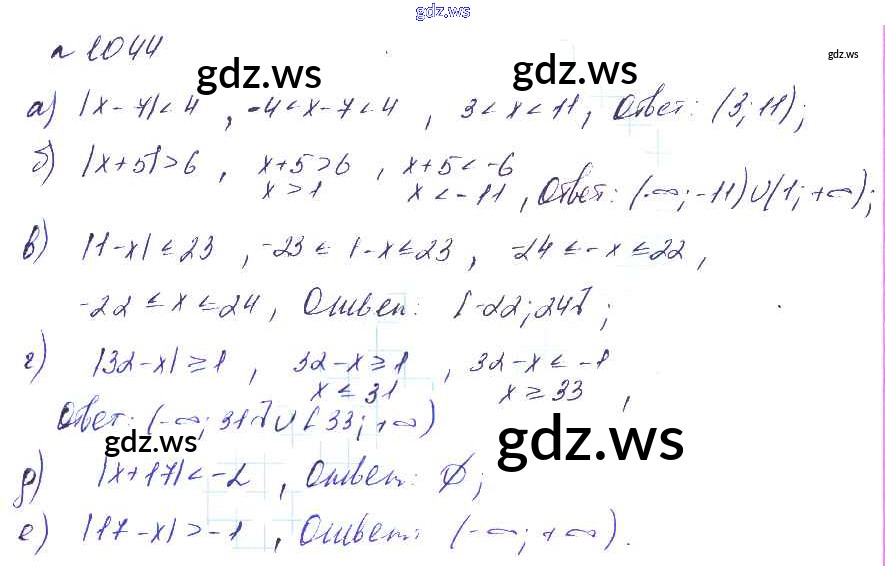 gdz.ws
№ 1044
gdz.ws gdz.ws gdz.ws
а) |x-7|<4, -4<x-7<4, 3<x<11, Ответ: (3; 11);
б) |x+5|>6, x+5>6, x+5<-6
x>1 x<-11, Ответ: (-∞; -11)∪(1; +∞);
в) |1-x|≤23, -23≤1-x≤23, -24≤-x≤22,
-22≤x≤24, Ответ: [-22; 24];
г) |32-x|≥1, 32-x≥1, 32-x≤-1
x≤31 x≥33,
Ответ: (-∞; 31]∪[33; +∞)
gdz.ws gdz.ws
д) |x+17|<-2, Ответ: ∅;
е) |17-x|>-1, Ответ: (-∞; +∞).